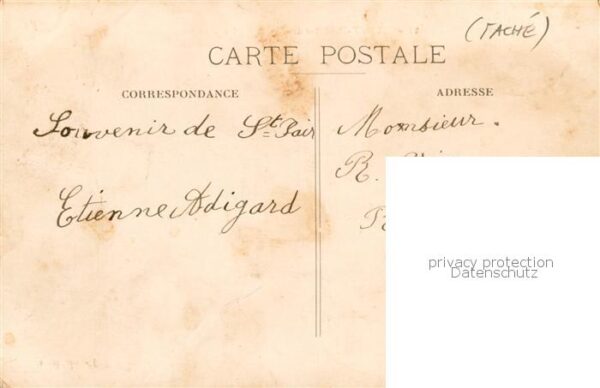 (TACHÉ)
CARTE POSTALE
CORRESPONDANCE
ADRESSE
Souvenir de St Pair
Monsieur.
R.
Etienne Adigard
privacy protection
Datenschutz